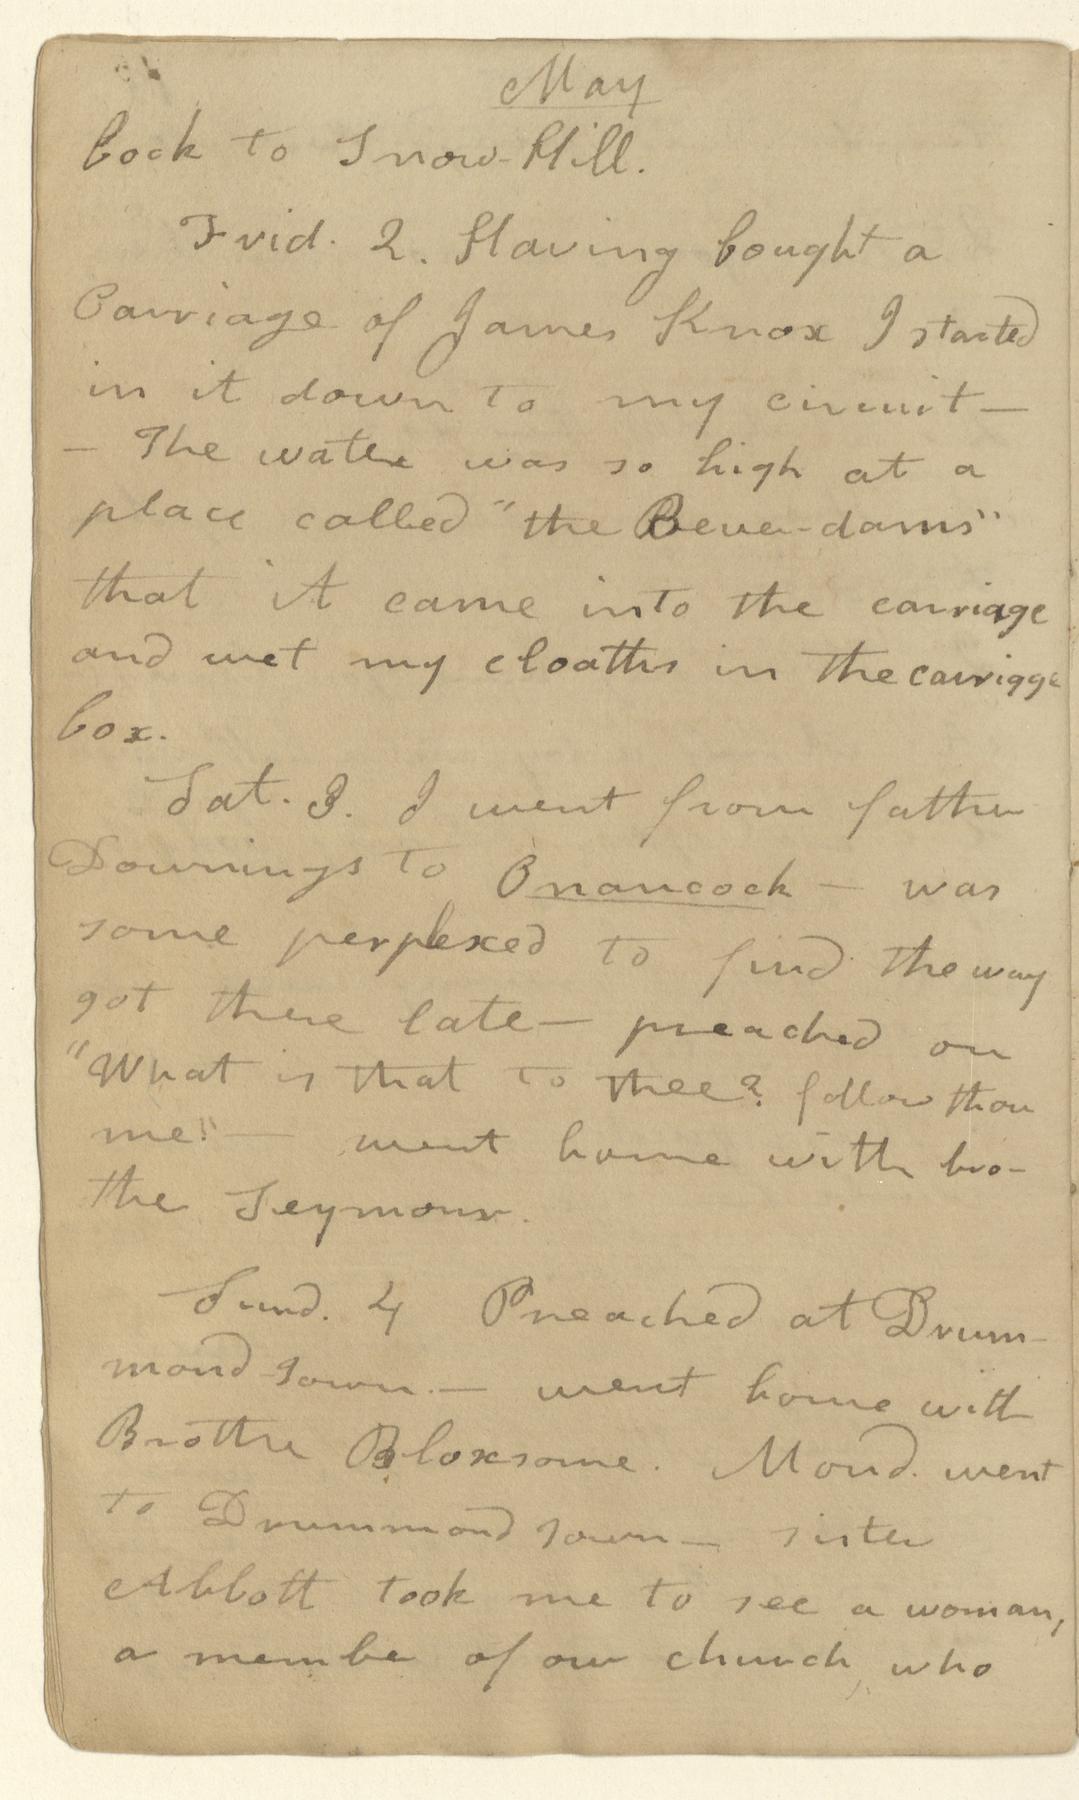 May
back to Snow-Hill.
Frid. 2. Having bought a
Carriage of James Knox I started
in it down to my circuit—
— The water was so high at a
place called "the Bever-dams"
that it came into the carriage
and wet my cloaths in the carrigge
box.
Sat. 3. I went from father
Downings to Onancock — was
some perplexed to find the way
got there late — preached on
"What is that to thee? follow thou
me!" — went home with bro-
ther Seymour.
Sund. 4 Preached at Drum-
mond Town. — went home with
Brother Bloxsome. Mond. went
to Drummond Town — sister
Abbott took me to see a woman,
a member of our church, who